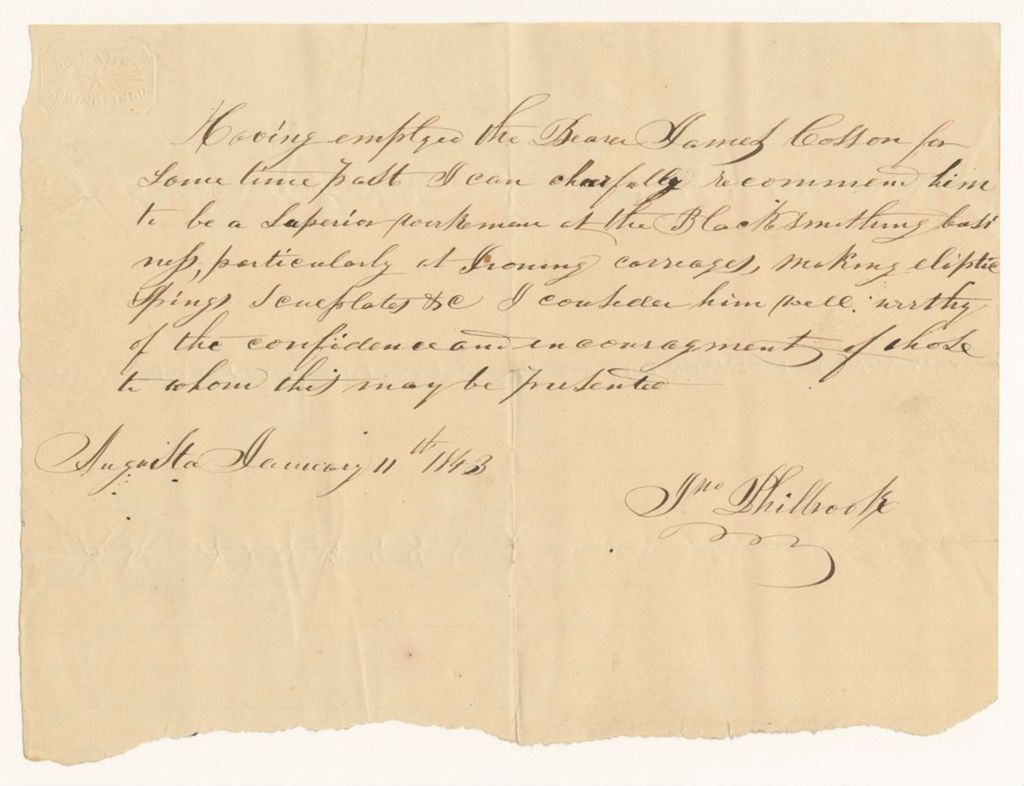 Having employed the Bearer James Colson for
Some time past I can cheerfully recommend him
to be a Superior workman at the Blacksmithing busi
ness, particularly at Ironing carriages, making eliptic
Spings Scueplates &c I consider him well worthy
of the confidence and encouragment of those
to whom this may be presented
Augusta January 11th 1843
Jno Philbrook